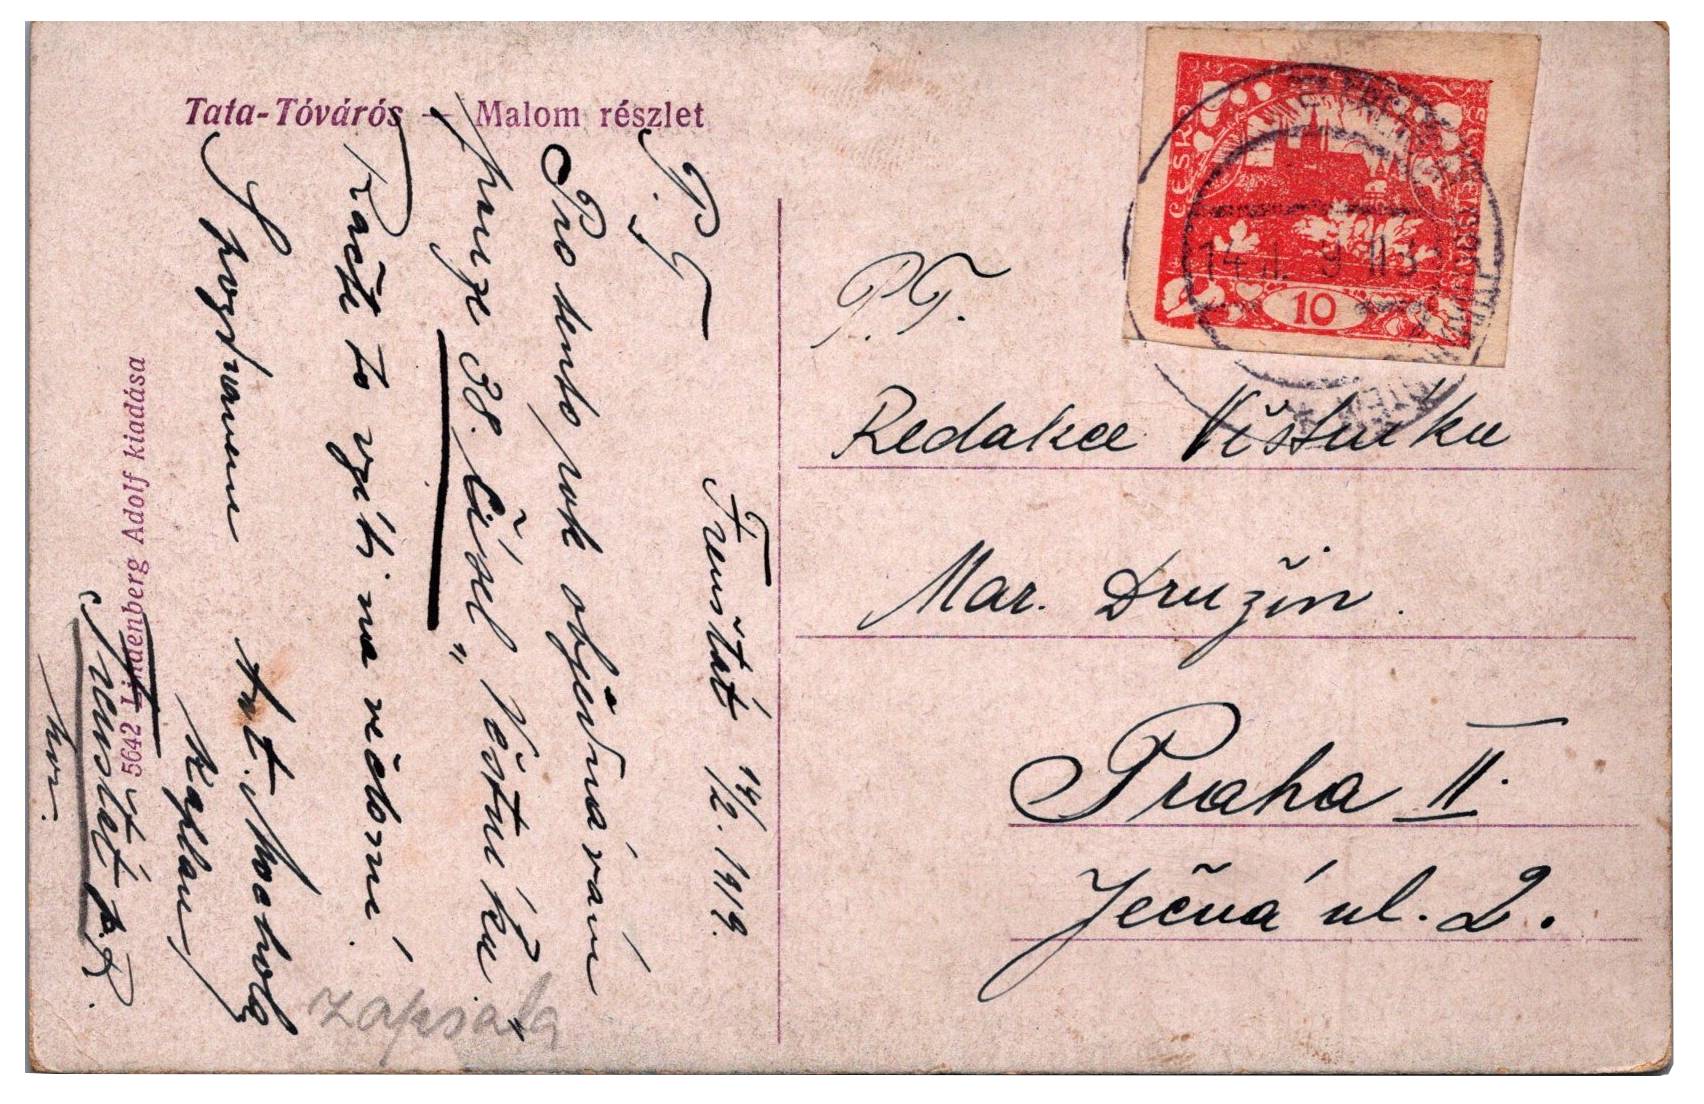 Tata-Tóváros — Malom részlet
5642 Lindenberg Adolf kiadása
Frenštát 14/2. 1919.
P. T.
Pro tento rok objednávám
pouze 38. čísel „Věstníku“.
Račte to vzíti na vědomí.
S pozdravem
Ant.
kaplan
Frenštát p. R.
Mor.
zapsala
P. T.
Redakce Věstníku
Mar. Družin.
Praha II.
Ječná ul. 2.
ČESKO
10
14. II.